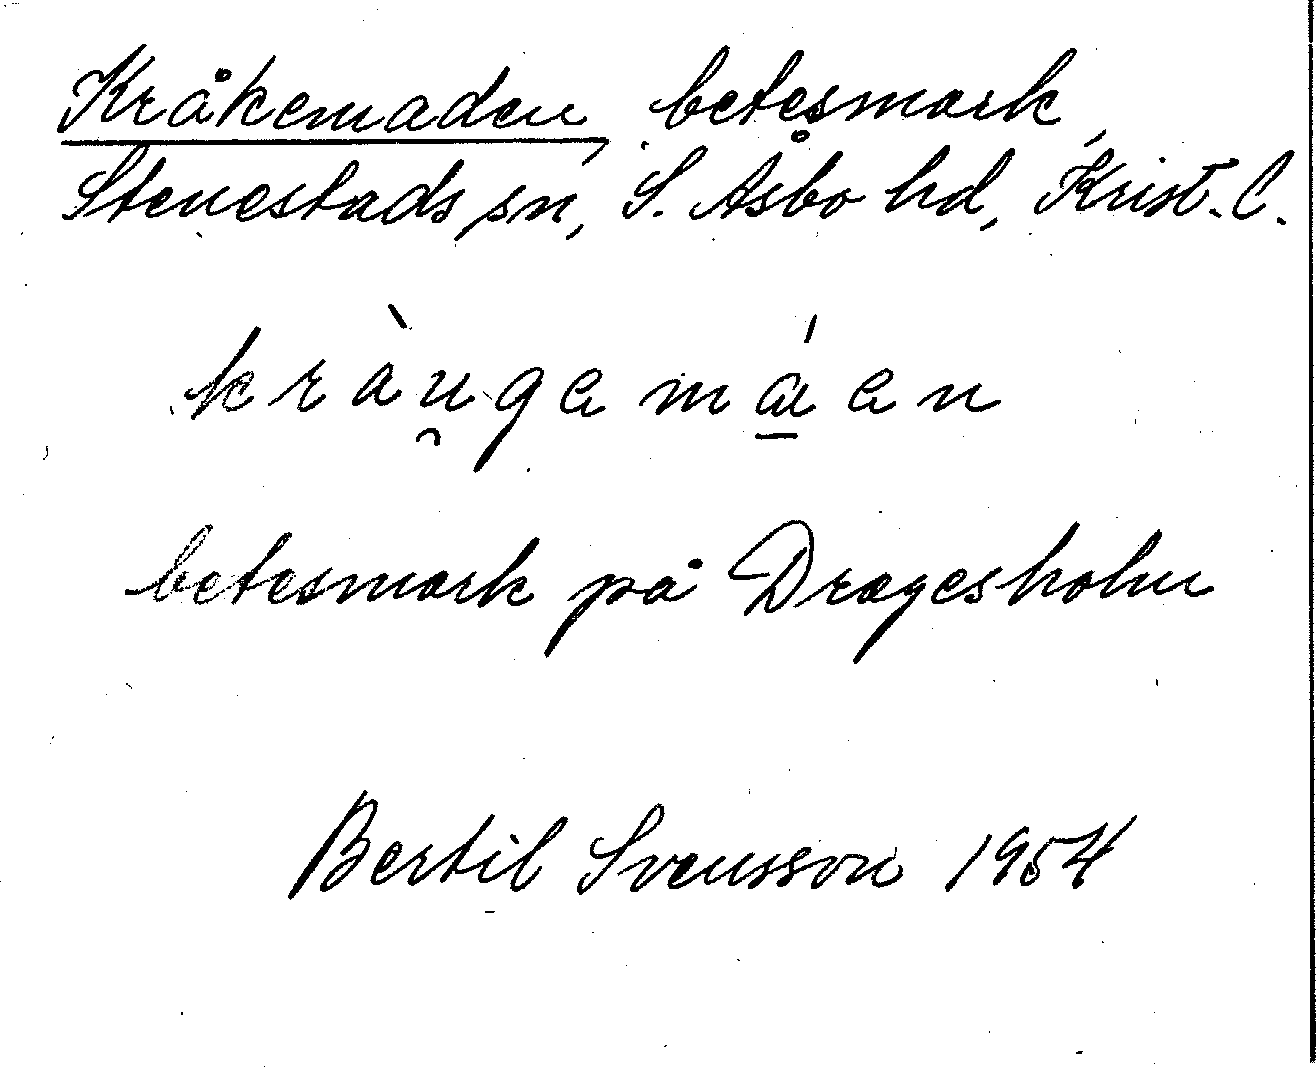 Kråkemaden, betesmark,
Stenestads sn, S. Åsbo hd, Krist. l.
kràu̯gemá̱en
betesmark på Dragesholm
Bertil Svensson 1954